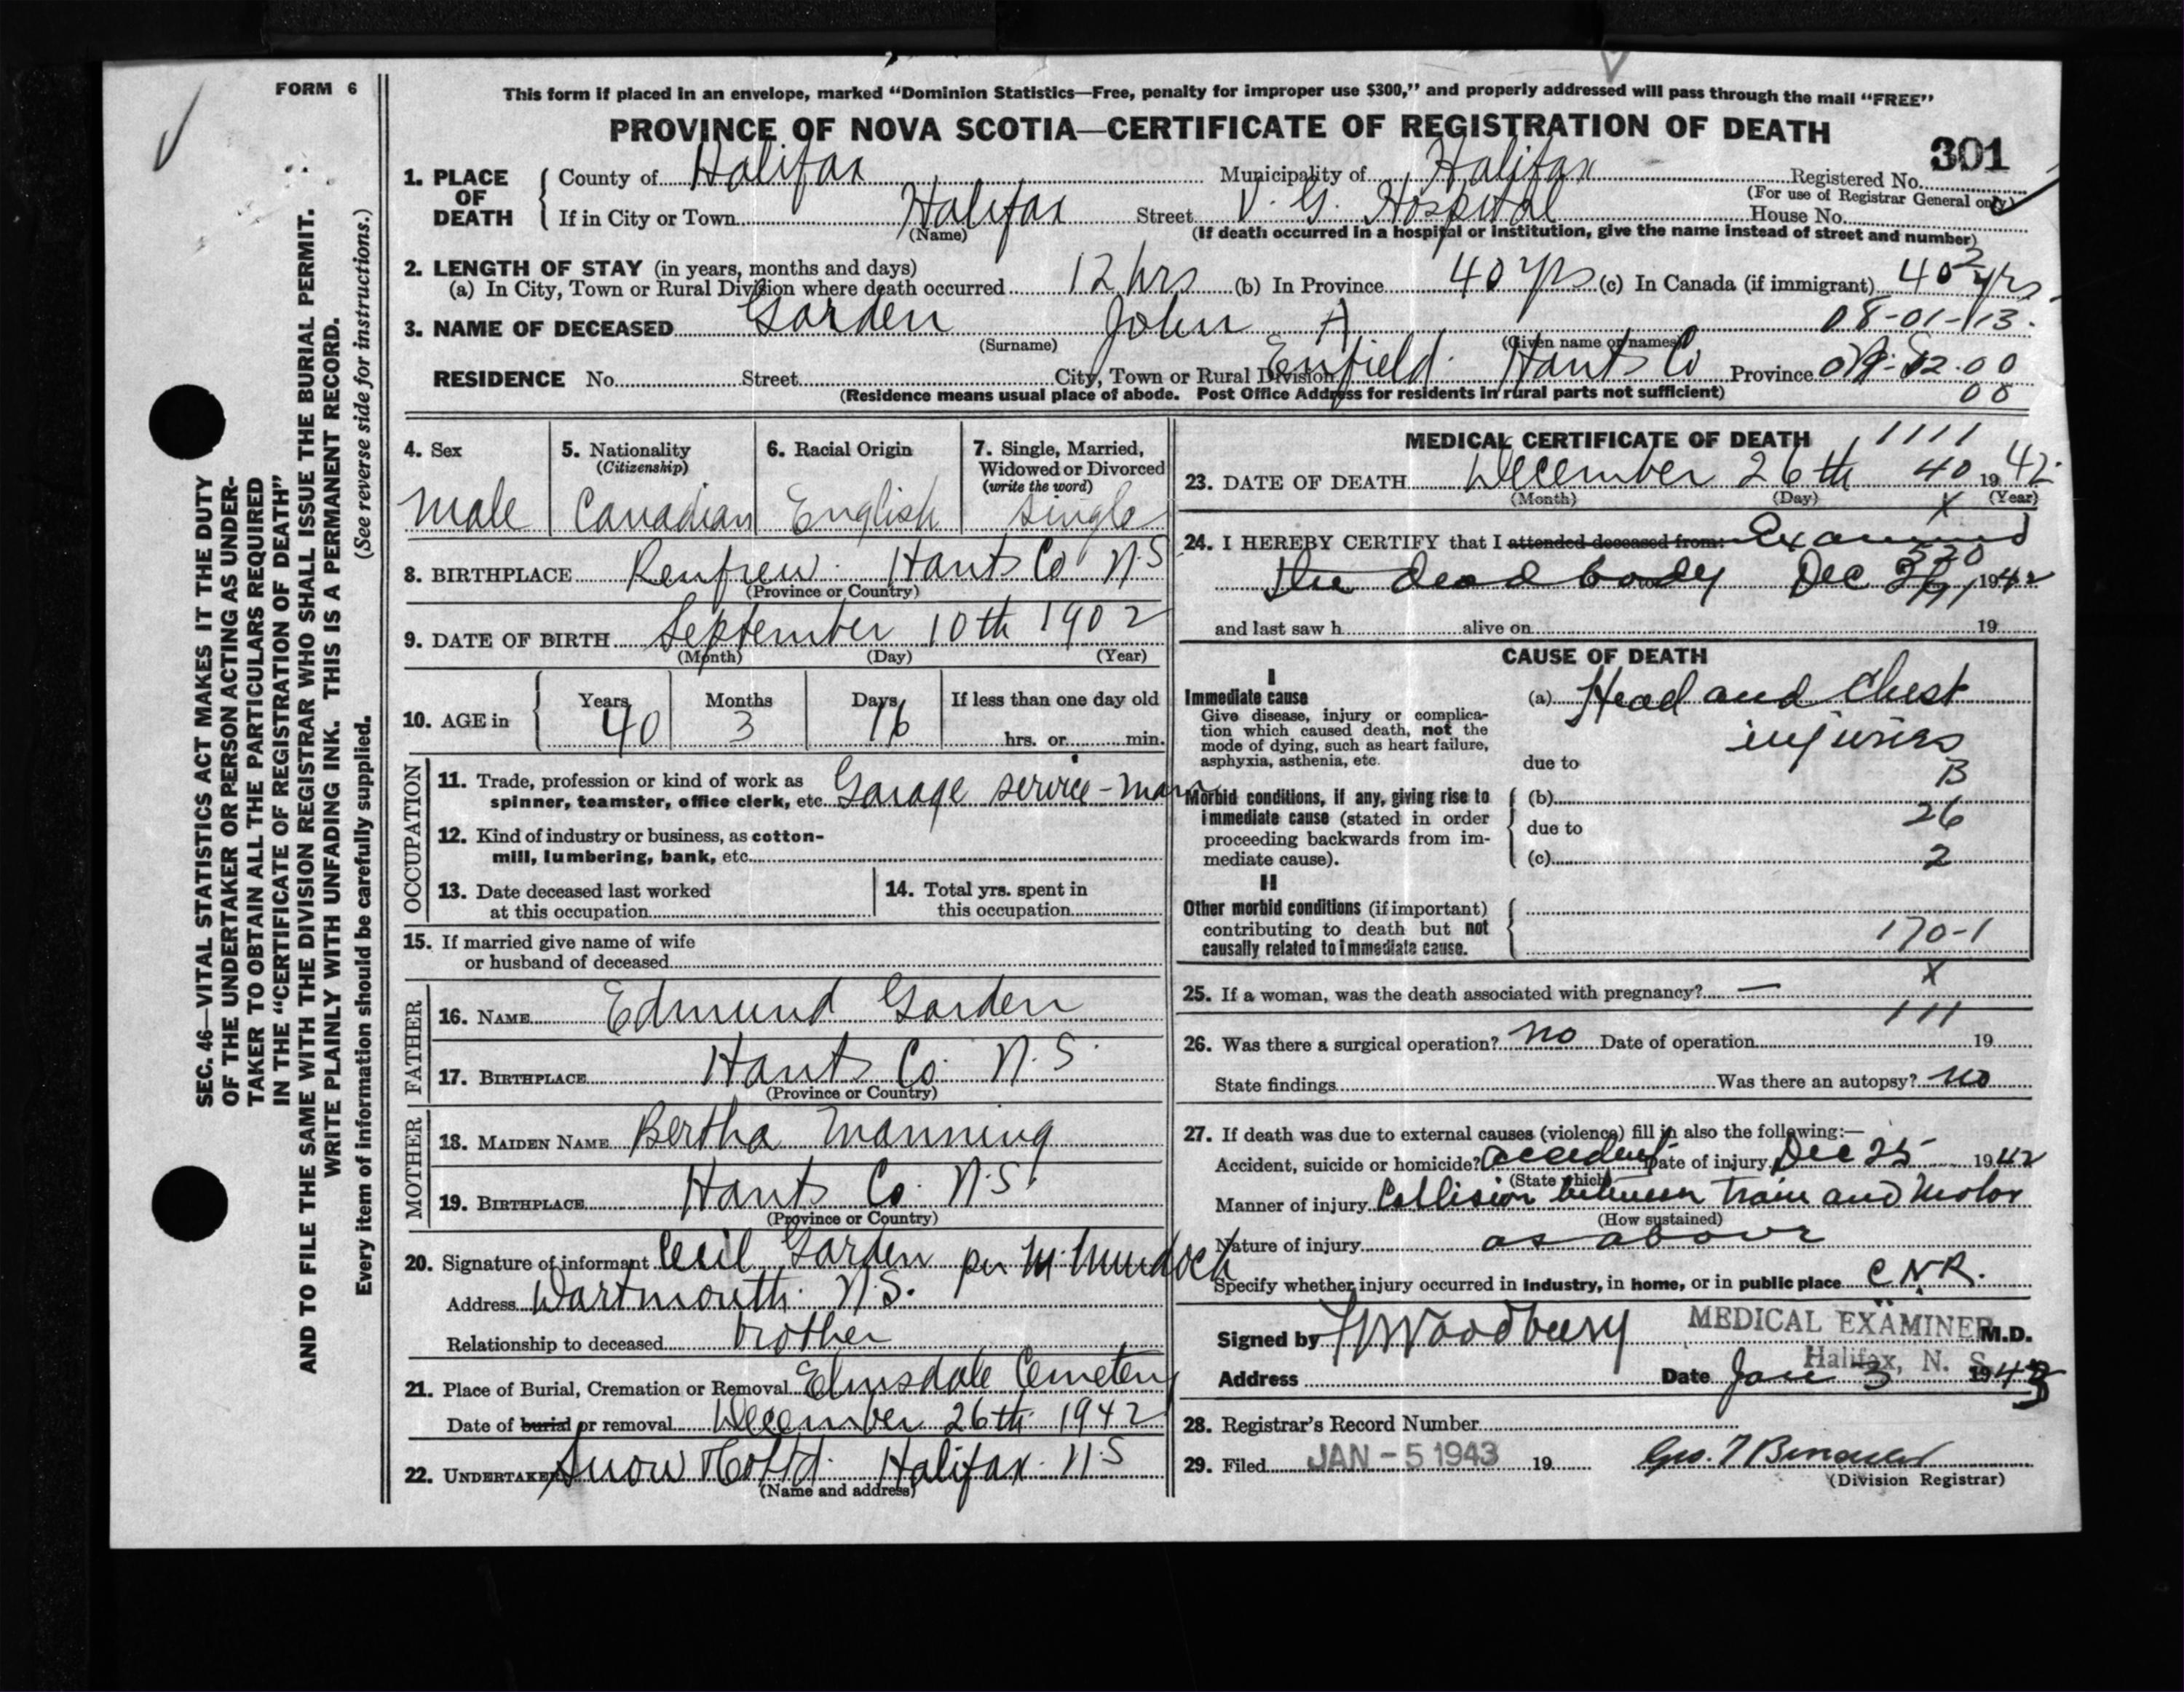 FORM 6
This form if placed in an envelope, marked “Dominion Statistics—Free, penalty for improper use $300,” and properly addressed will pass through the mail “FREE”
PROVINCE OF NOVA SCOTIA—CERTIFICATE OF REGISTRATION OF DEATH
301
SEC. 46—VITAL STATISTICS ACT MAKES IT THE DUTY
OF THE UNDERTAKER OR PERSON ACTING AS UNDER-
TAKER TO OBTAIN ALL THE PARTICULARS REQUIRED
IN THE “CERTIFICATE OF REGISTRATION OF DEATH”
AND TO FILE THE SAME WITH THE DIVISION REGISTRAR WHO SHALL ISSUE THE BURIAL PERMIT.
WRITE PLAINLY WITH UNFADING INK. THIS IS A PERMANENT RECORD.
Every item of information should be carefully supplied. (See reverse side for instructions.)
1. PLACE OF DEATH
County of Halifax Municipality of Halifax Registered No.
(For use of Registrar General only)
If in City or Town Halifax Street V. G. Hospital House No.
(Name) (If death occurred in a hospital or institution, give the name instead of street and number)
2. LENGTH OF STAY (in years, months and days)
(a) In City, Town or Rural Division where death occurred 12 hrs (b) In Province 40 yrs (c) In Canada (if immigrant) 40 yrs
2
3. NAME OF DECEASED Garden John A 08-01-113.
(Surname) (Given name or names)
RESIDENCE No. Street City, Town or Rural Division Enfield. Hants Co Province
00
(Residence means usual place of abode. Post Office Address for residents in rural parts not sufficient)
4. Sex
male
5. Nationality
(Citizenship)
Canadian
6. Racial Origin
English
7. Single, Married,
Widowed or Divorced
(write the word)
Single
8. BIRTHPLACE Renfrew. Hants Co N.S
(Province or Country)
9. DATE OF BIRTH September 10th 1902
(Month) (Day) (Year)
10. AGE in Years 40 Months 3 Days 16 If less than one day old
hrs. or min.
OCCUPATION
11. Trade, profession or kind of work as
spinner, teamster, office clerk, etc. Garage service-man
12. Kind of industry or business, as cotton-
mill, lumbering, bank, etc.
13. Date deceased last worked
at this occupation
14. Total yrs. spent in
this occupation
15. If married give name of wife
or husband of deceased
FATHER
16. NAME Edmund Garden
17. BIRTHPLACE Hants Co. N.S.
(Province or Country)
MOTHER
18. MAIDEN NAME Bertha Manning
19. BIRTHPLACE Hants Co. N.S.
(Province or Country)
20. Signature of informant Cecil Garden per M. Murdoch
Address Dartmouth. N.S.
Relationship to deceased brother
21. Place of Burial, Cremation or Removal Elmsdale Cemetery
Date of burial or removal December 26th 1942
22. UNDERTAKER Snow & Co Ltd. Halifax. N.S
(Name and address)
MEDICAL CERTIFICATE OF DEATH 1111
23. DATE OF DEATH December 26th 40 1942
(Month) (Day) (Year)
X
24. I HEREBY CERTIFY that I attended deceased from: Examined
520
the dead body Dec 1942
and last saw h alive on 19
CAUSE OF DEATH
I
Immediate cause
Give disease, injury or complica-
tion which caused death, not the
mode of dying, such as heart failure,
asphyxia, asthenia, etc.
(a) Head and Chest
injuries
due to
B
Morbid conditions, if any, giving rise to
immediate cause (stated in order
proceeding backwards from im-
mediate cause).
(b)
26
due to
(c) 2
II
Other morbid conditions (if important)
contributing to death but not
causally related to immediate cause.
170-1
X
25. If a woman, was the death associated with pregnancy? —
111
26. Was there a surgical operation? no Date of operation 19
State findings Was there an autopsy? no
27. If death was due to external causes (violence) fill in also the following:—
Accident, suicide or homicide? accident Date of injury Dec 25 1942
(State which)
Manner of injury Collision between train and motor
(How sustained)
Nature of injury as above
Specify whether injury occurred in industry, in home, or in public place CNR.
Signed by Woodbury MEDICAL EXAMINER M.D.
Halifax, N. S.
Address Date Jan 3 1943
28. Registrar's Record Number
29. Filed JAN - 5 1943 19
(Division Registrar)